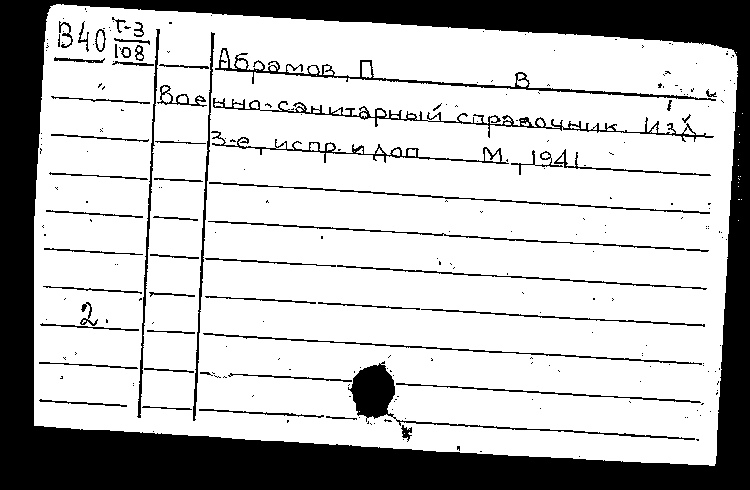 В40 Т-3
108
Абрамов, П В
Военно-санитарный справочник. Изд.
3-е, испр. и доп М., 1941.
2.